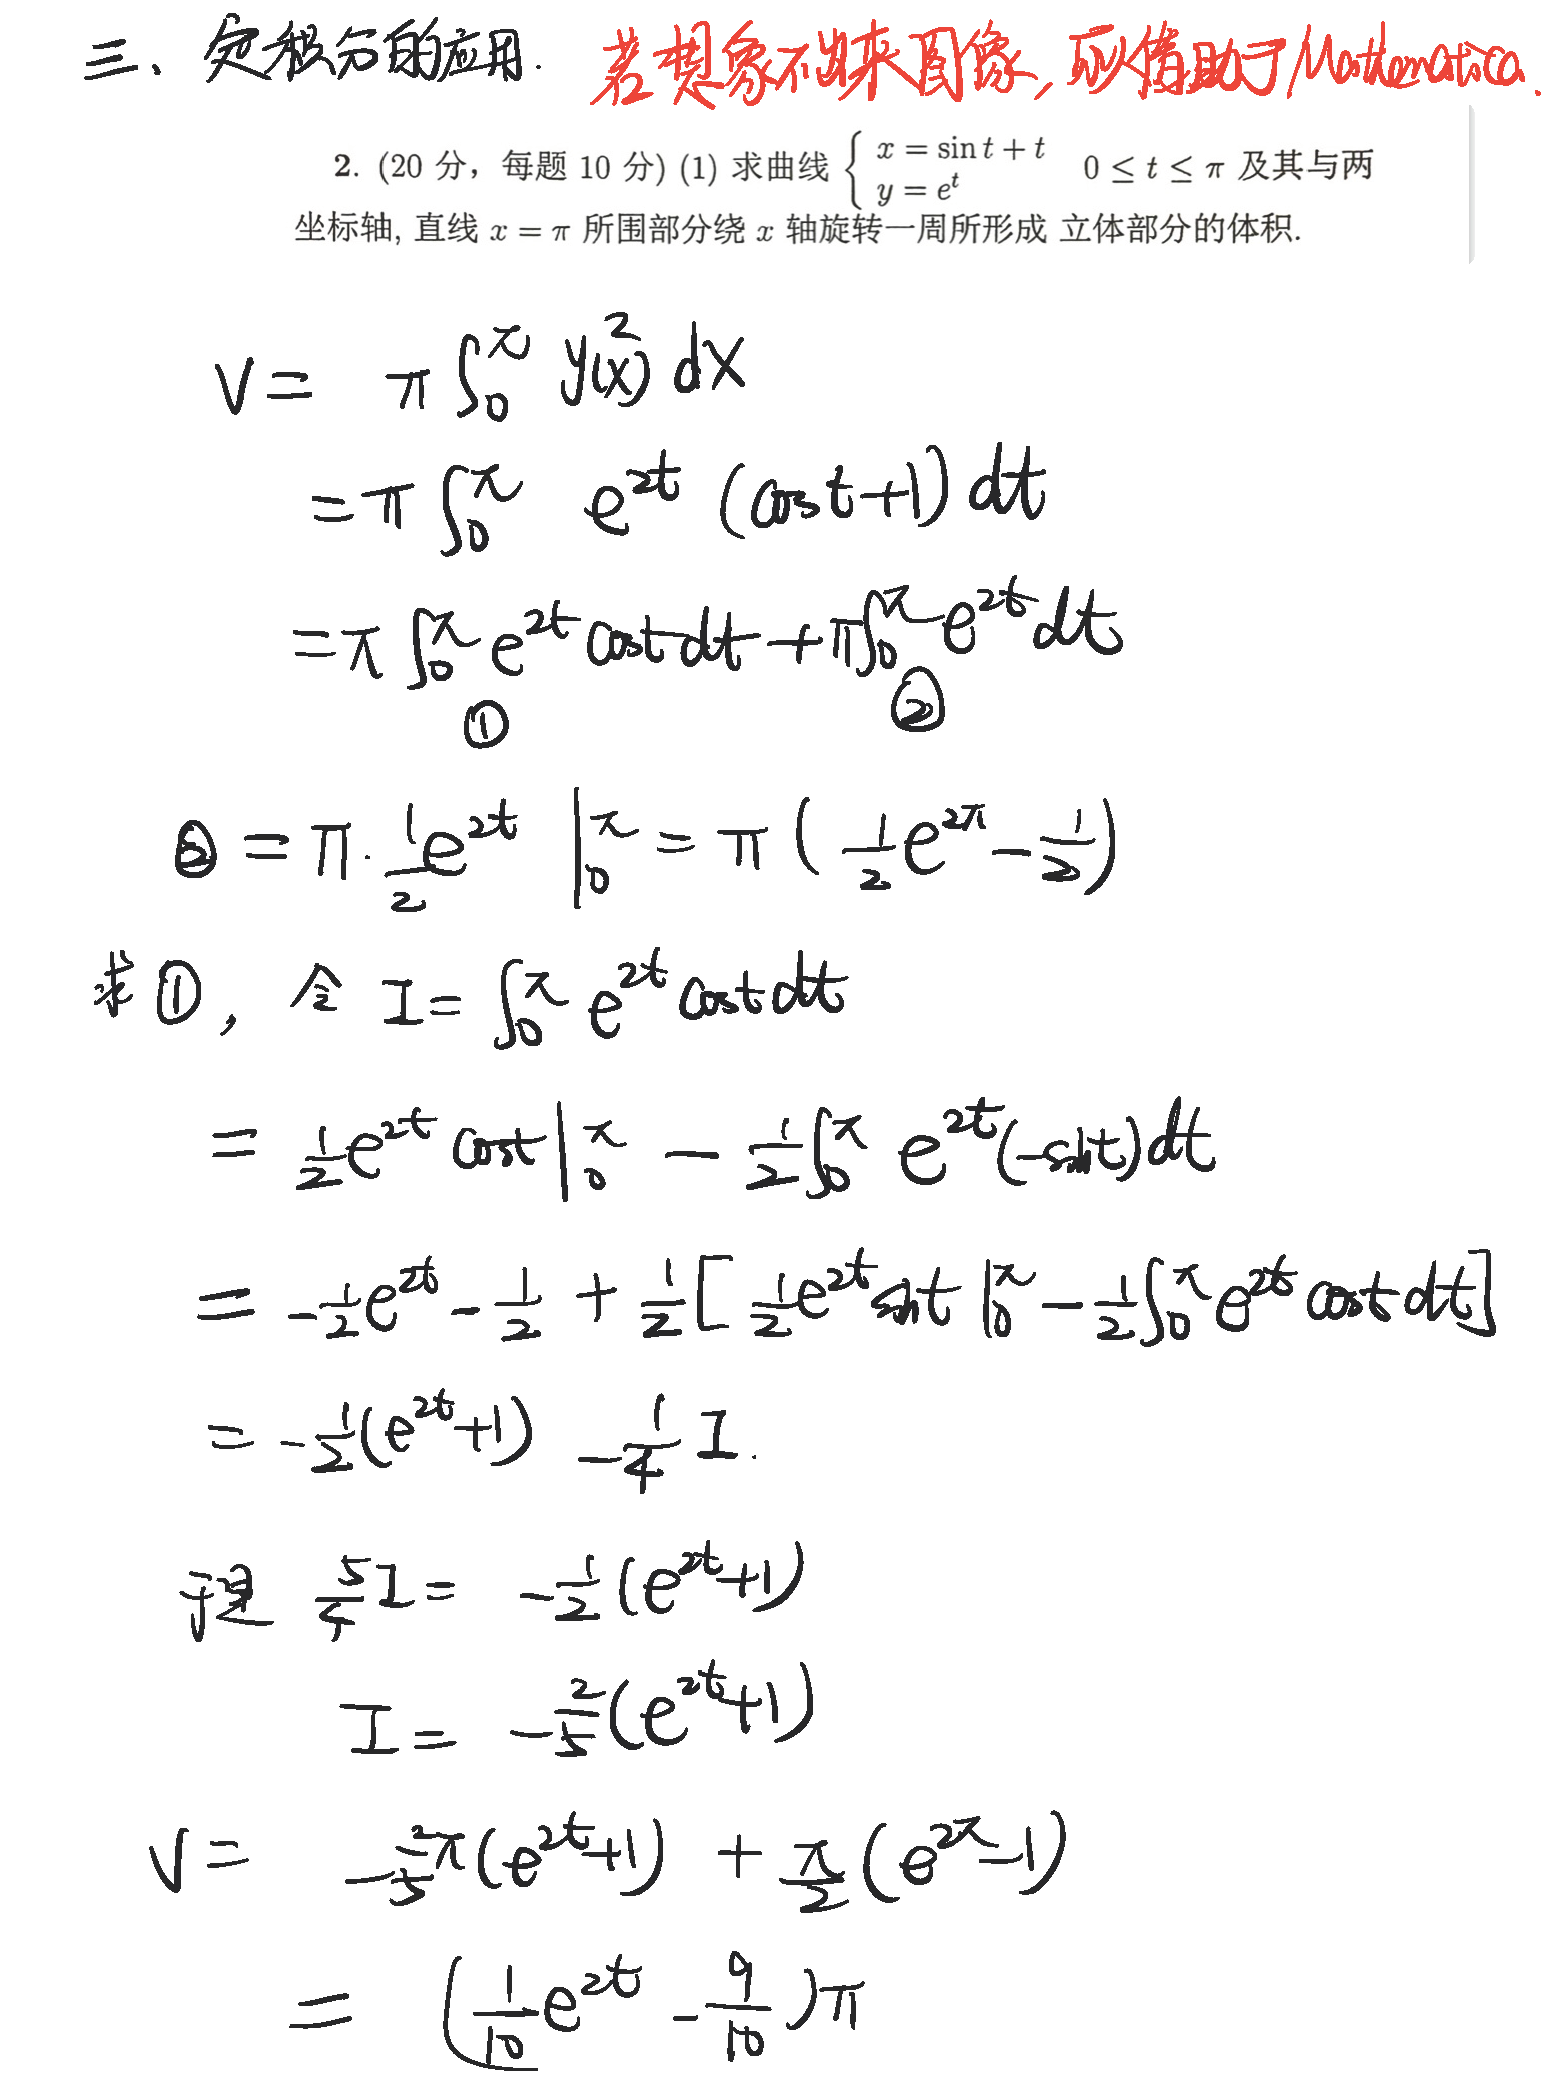 三、定积分的应用. 若想象不出来图像, 可以借助于Mathematica.
2. (20 分，每题 10 分) (1) 求曲线 { x = sin t + t, y = e^t 0 ≤ t ≤ π 及其与两
坐标轴, 直线 x = π 所围部分绕 x 轴旋转一周所形成 立体部分的体积.
V = π ∫_0^π y^2(x) dx
= π ∫_0^π e^{2t} (cost+1) dt
= π ∫_0^π e^{2t} cost dt + π∫_0^π e^{2t} dt
① ②
② = π · 1/2 e^{2t} |_0^π = π ( 1/2 e^{2π} - 1/2 )
求①, 令 I = ∫_0^π e^{2t} cost dt
= 1/2 e^{2t} cost |_0^π - 1/2 ∫_0^π e^{2t} (-sint) dt
= - 1/2 e^{2t} - 1/2 + 1/2 [ 1/2 e^{2t} sint |_0^π - 1/2 ∫_0^π e^{2t} cost dt ]
= - 1/2 (e^{2t}+1) - 1/4 I.
于是 5/4 I = - 1/2 (e^{2t}+1)
I = - 2/5 (e^{2t}+1)
V = - 2/5 π (e^{2t}+1) + π/2 (e^{2π}-1)
= ( 1/10 e^{2t} - 9/10 ) π